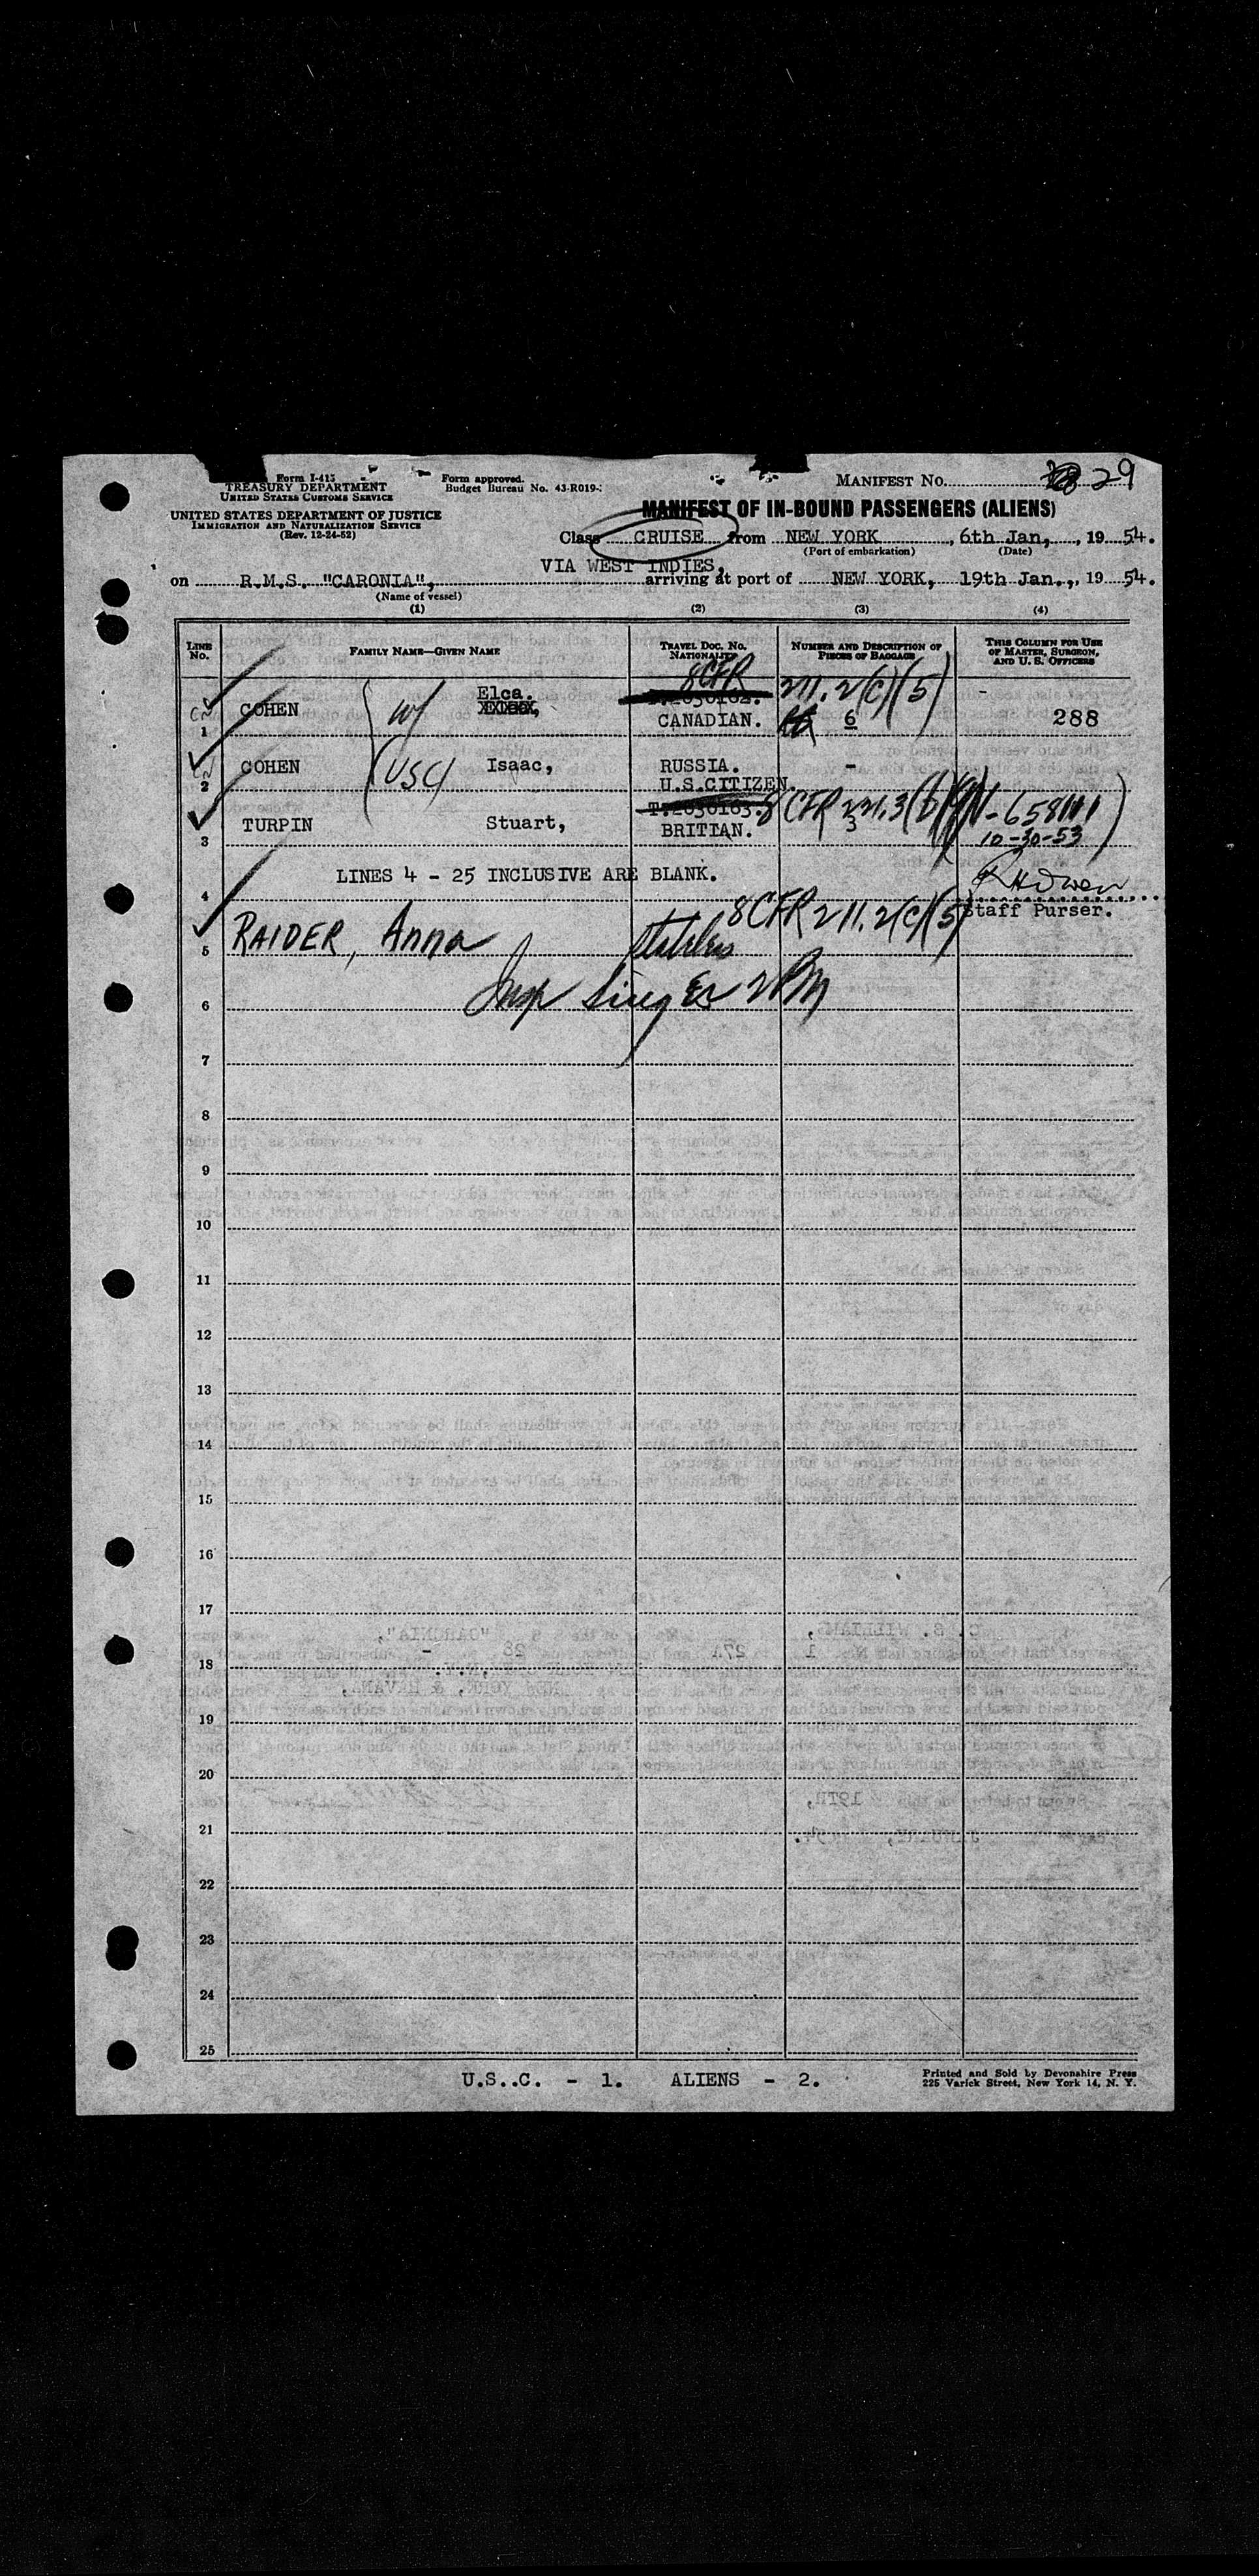 Form I-415
TREASURY DEPARTMENT
UNITED STATES CUSTOMS SERVICE
UNITED STATES DEPARTMENT OF JUSTICE
IMMIGRATION AND NATURALIZATION SERVICE
(Rev. 12-24-52)
Form approved.
Budget Bureau No. 43-R019-
MANIFEST No. 29
MANIFEST OF IN-BOUND PASSENGERS (ALIENS)
Class CRUISE from NEW YORK, 6th Jan, 19 54.
(Port of embarkation) (Date)
VIA WEST INDIES,
on R.M.S. "CARONIA", arriving at port of NEW YORK, 19th Jan., 19 54.
(Name of vessel)
(1) (2) (3) (4)
LINE No. FAMILY NAME—GIVEN NAME TRAVEL DOC. NO. NATIONALITY NUMBER AND DESCRIPTION OF PIECES OF BAGGAGE THIS COLUMN FOR USE OF MASTER, SURGEON, AND U. S. OFFICERS
8CFR 211.2(c)(5)
Elca. -
1 COHEN w/ CANADIAN. 6 288
COHEN (USC) Isaac, RUSSIA. -
2 U.S.CITIZEN.
T.2030163. 8 CFR
TURPIN Stuart, BRITIAN. 3 10-30-53
3
LINES 4 - 25 INCLUSIVE ARE BLANK.
4
8CFR 211.2(c)(5) Staff Purser.
5 RAIDER, Anna Stateless
6 Insp Singer
7
8
9
10
11
12
13
14
15
16
17
18
19
20
21
22
23
24
25
U.S..C. - 1. ALIENS - 2.
Printed and Sold by Devonshire Press
225 Varick Street, New York 14, N. Y.